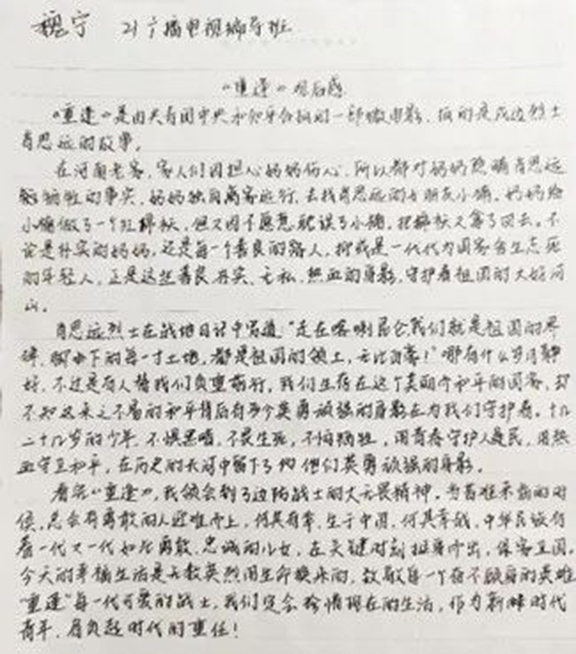 魏宁 21广播电视编导班
《重逢》观后感
《重逢》是由共青团中央和平台拍的一部微电影,拍的是戍边烈士
肖思远的故事。
在河南老家,家人们因担心妈妈伤心,所以都对妈妈隐瞒肖思远
牺牲的事实,妈妈独自离家远行,去找肖思远的女朋友小娟,妈妈给
小娟做了一个红棉袄,但又因不愿意耽误了小娟,把棉袄又拿了回去。不
论是朴实的妈妈,还是每一个善良的路人,抑或是一代代为国家舍生忘死
的年轻人,正是这些善良、朴实、无私、热血的身影,守护着祖国的大好河
山。
肖思远烈士在战地日记中写道:“走在喀喇昆仑我们就是祖国的界
碑,脚下的每一寸土地,都是祖国的领土,无比自豪!”哪有什么岁月静
好,不过是有人替我们负重前行,我们生存在这个美丽个和平的国家,却
不知这来之不易的和平背后有多个英勇顽强的身影在为我们守护着。十几
二十几岁的少年,不惧黑暗,不畏生死,不怕牺牲,用青春守护人民,用热
血守卫和平,在历史的长河中留下了他们英勇顽强的身影。
看完《重逢》,我领会到了边防战士的大无畏精神,当苦难来临的时
候,总会有勇敢的人迎难而上,何其有幸,生于中国,何其幸哉,中华民族有
着一代又一代如此勇敢、忠诚的儿女,在关键时刻挺身而出,保家卫国。
今天的幸福生活是无数英烈用生命换来的,致敬每一个奋不顾身的英雄
“重逢”每一代可爱的战士,我们定会珍惜现在的生活,作为新时代
青年,肩负起时代的重任!